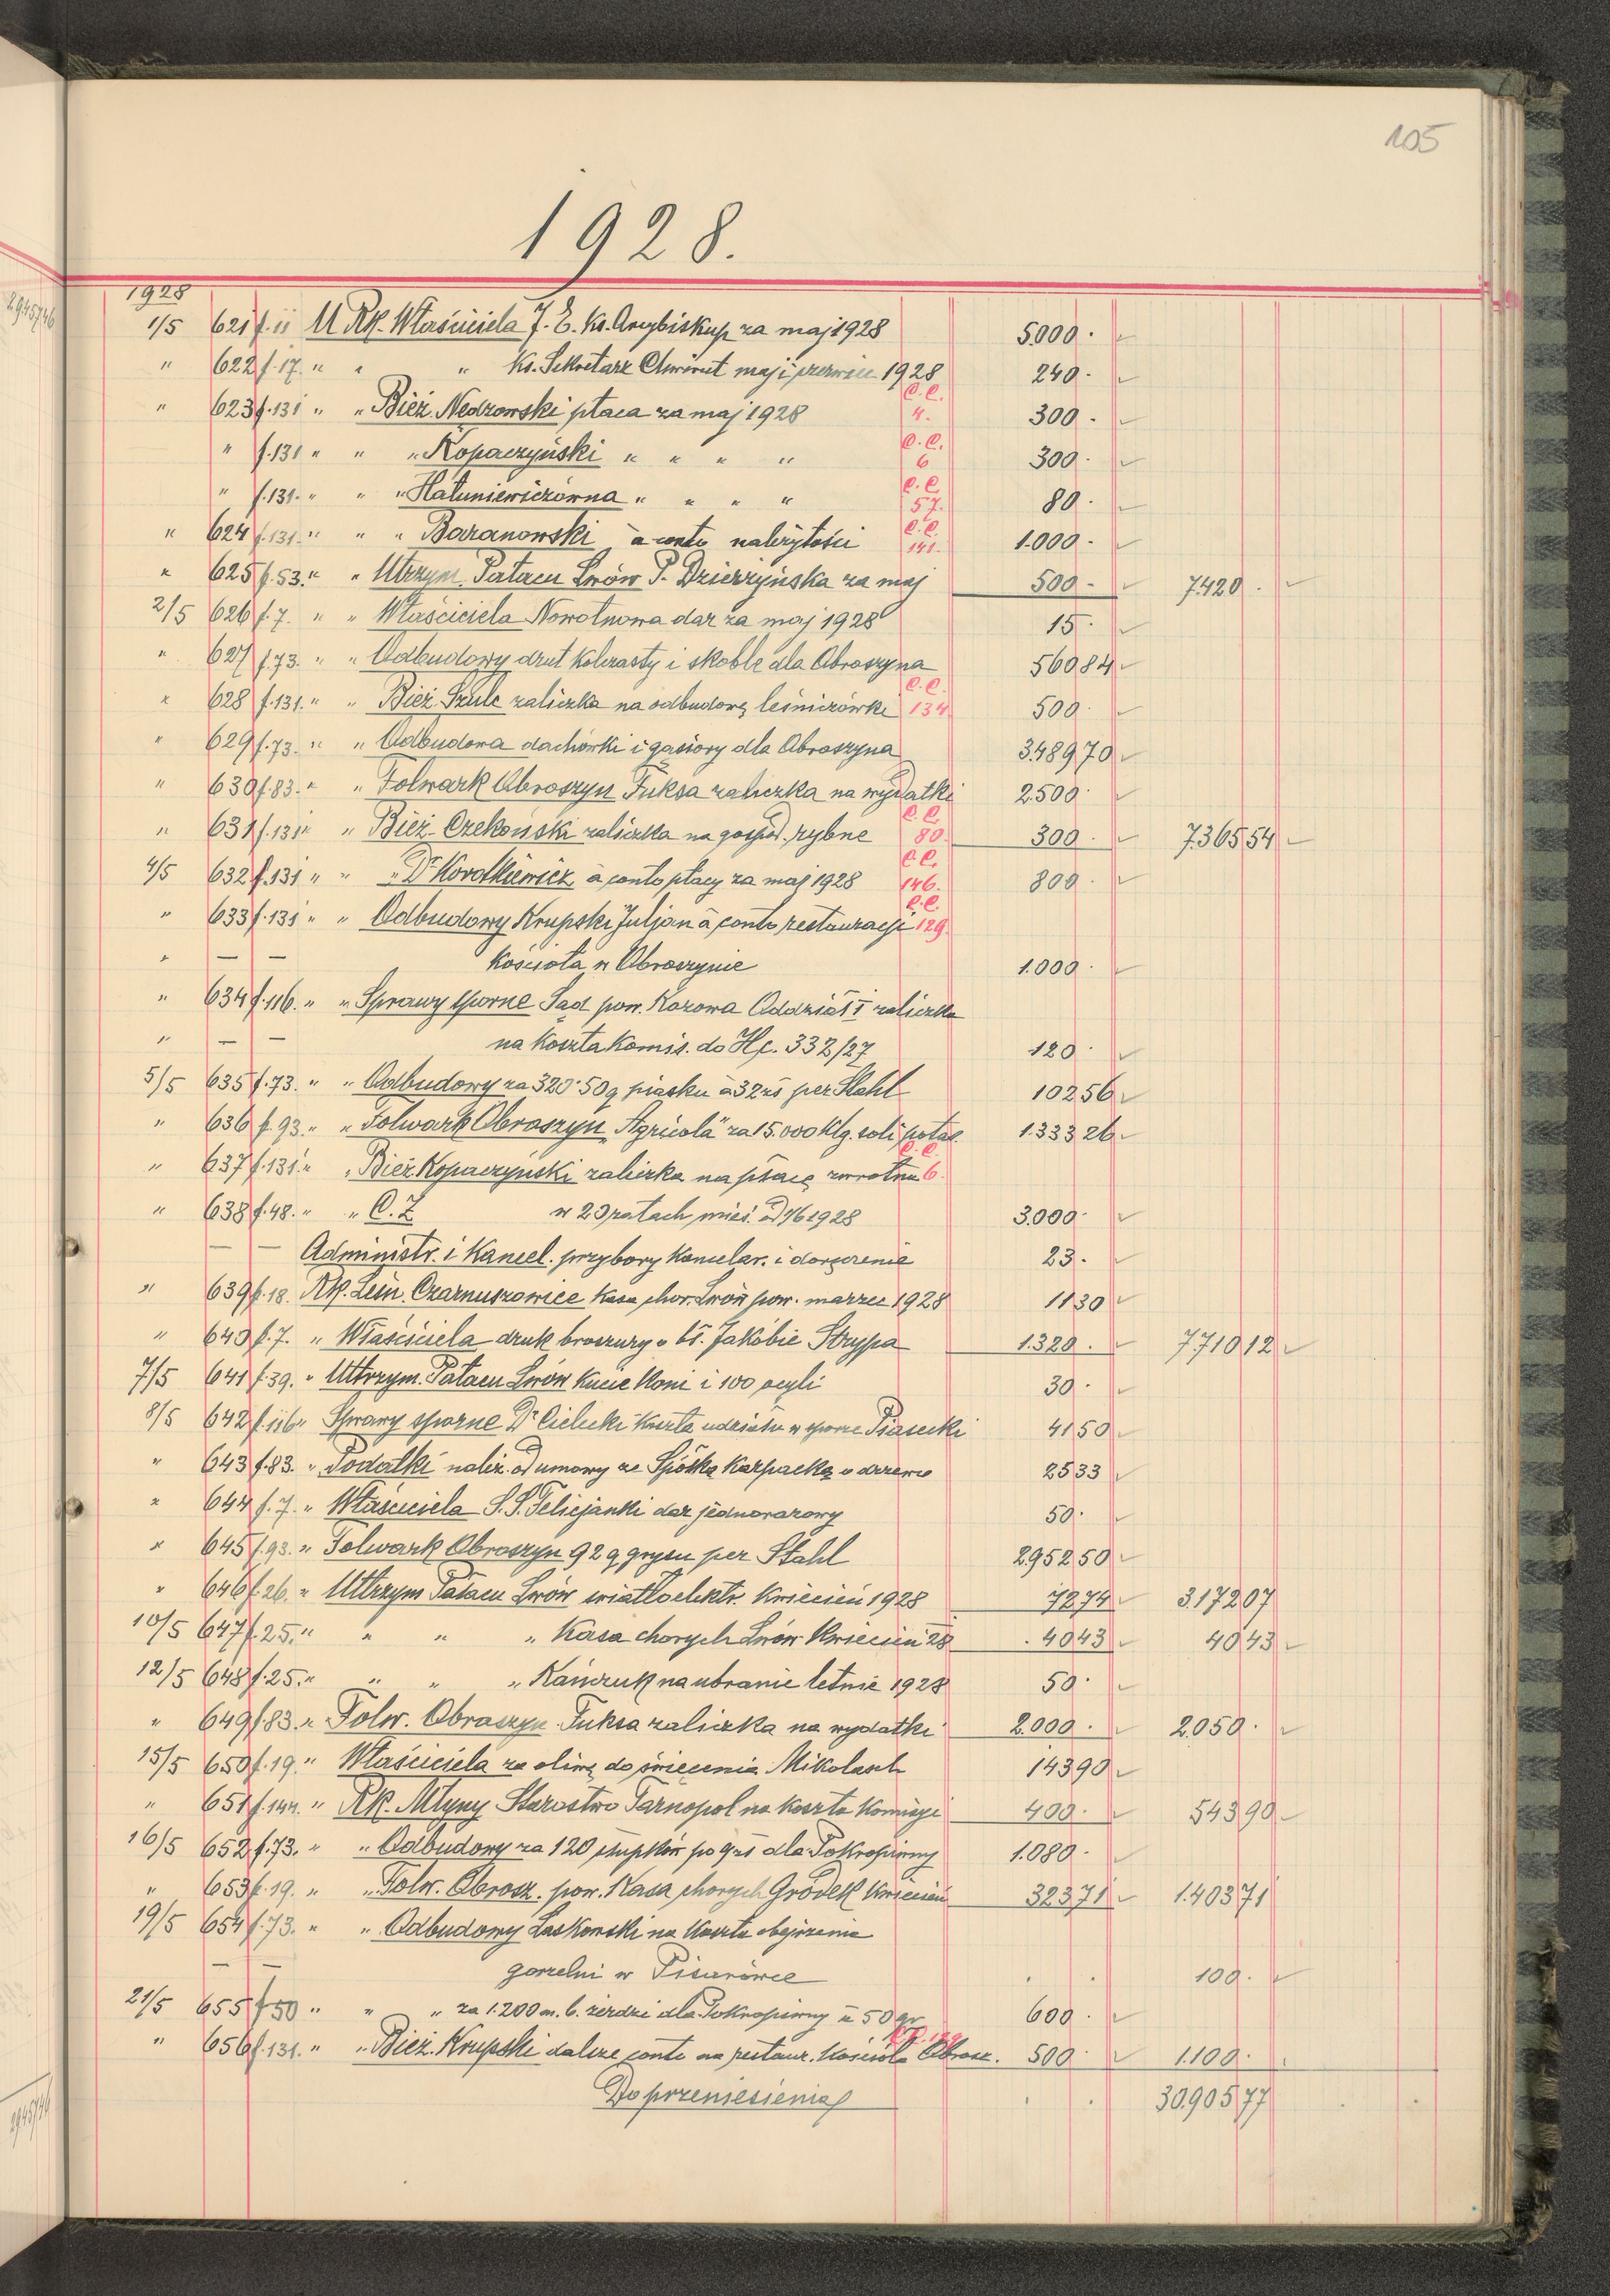 105
1928.
1928
1/5 621 f. 11 U Rk. Właściciela J. E. Ks. Arcybiskup za maj 1928 5.000 ·
" 622 f. 17. " " " Ks. Sekretarz maj i czerwiec 1928 240 ·
" 623 f. 131 " " Bież. Nedzowski płaca za maj 1928 C.C. 4. 300 ·
" f. 131 " " " Kopaczyński " " " " C.C. 6 300 ·
" f. 131. " " " Hatuniewiczówna " " " " C.C. 57. 80 ·
" 624 f. 131. " " " Baranowski à conto należytości C.C. 141. 1.000 ·
" 625 f. 53. " " Utrzym. Pałacu Lwów P. Dzierżyńska za maj 500 - 7.420 ·
2/5 626 f. 7. " " Właściciela Nowotnowa dar za maj 1928 15 ·
" 627 f. 73. " " Odbudowy drut kolczasty i skoble dla Obroszyna 560 84
" 628 f. 131. " " Bież. Szulc zaliczka na odbudowę leśniczówki C.C. 134 500 ·
" 629 f. 73. " " Odbudowa dachówki i gąsiory dla Obroszyna 3.489 70
" 630 f. 83. " " Folwark Obroszyn Fuksa zaliczka na wydatki 2.500 ·
" 631 f. 131 " " Bież. Czekoński zaliczka na gospod. rybne C.C. 80. 300 · 7.365 54
4/5 632 f. 131 " " " Dr Kordkiewicz à conto płacy za maj 1928 C.C. 146. 800 ·
" 633 f. 131 " " Odbudowy Krupski Juljan à conto restauracji C.C. 129.
" — — kościoła w Obroszynie 1.000 ·
" 634 f. 116. " " Sprawy sporne Sąd pow. Kozowa Oddział I zaliczka
" — — na koszta komis. do Hc. 332/27 120 ·
5/5 635 f. 73. " " Odbudowy za 320·50 q piasku à 32 zł per Stahl 102 56
" 636 f. 93. " " Folwark Obroszyn "Agricola" za 15.000 klg. soli potas. 1.333 26
" 637 f. 131. " " Bież. Kopaczyński zaliczka na płacę zwrotna C.C. 6.
" 638 f. 48. " " C. Z w 20 ratach mies. od 1/6 1928 3.000 ·
— — Administr. i Kancel. przybory kancelar. i doręczenie 23 ·
" 639 f. 18. Rk. Leśn. Czarnuszowice Kasa chor. Lwów pow. marzec 1928 11 30
" 640 f. 7. " Właściciela druk broszury o bł. Jakóbie Strzypa 1.320 . 7.710 12
7/5 641 f. 39. " Utrzym. Pałacu Lwów kucie koni i 100 ocyli 30 ·
8/5 642 f. 116 " Sprawy sporne Dr Cielecki koszta udziału w sporze Piasecki 41 50
" 643 f. 83. " Podatki należ. od umowy ze Spółką Karpacką o drzewo 25 33
" 644 f. 7. " Właściciela S.S. Felicjanki dar jednorazowy 50 ·
" 645 f. 93. " Folwark Obroszyn 92 q grysu per Stahl 2.952 50
" 646 f. 26. " Utrzym Pałacu Lwów światło elektr. kwiecień 1928 72 74 3.172 07
10/5 647 f. 25. " " " " Kasa chorych Lwów kwiecień 28 40 43 40 43
12/5 648 f. 25. " " " " Kańczuk na ubranie letnie 1928 50 ·
" 649 f. 83. " Folw. Obroszyn. Fuksa zaliczka na wydatki 2.000 · 2.050 ·
15/5 650 f. 19. " Właściciela za oliwę do świecenia Mikolasch 143 90
" 651 f. 144. " Rk. Młyny Starostwo Tarnopol na koszta komisyi 400 · 543 90
16/5 652 f. 73. " " Odbudowy za 120 słupków po 9 zł dla Pokropiwny 1.080 ·
" 653 f. 19. " " Folw. Obrosz. pow. Kasa chorych Gródek kwiecień 323 71 1.403 71
19/5 654 f. 73. " " Odbudowy Laskowski na koszta obejrzenia
— — gorzelni w Pisarówce 100 ·
21/5 655 f 50 " " " za 1.200 m. b. żerdzi dla Pokropiwny à 50 gr 600 ·
" 656 f. 131. " " Bież. Krupski dalsze conto na restaur. kościoła Obrosz. C.C. 129 500 · 1.100 ·
Do przeniesienia 30.905 77